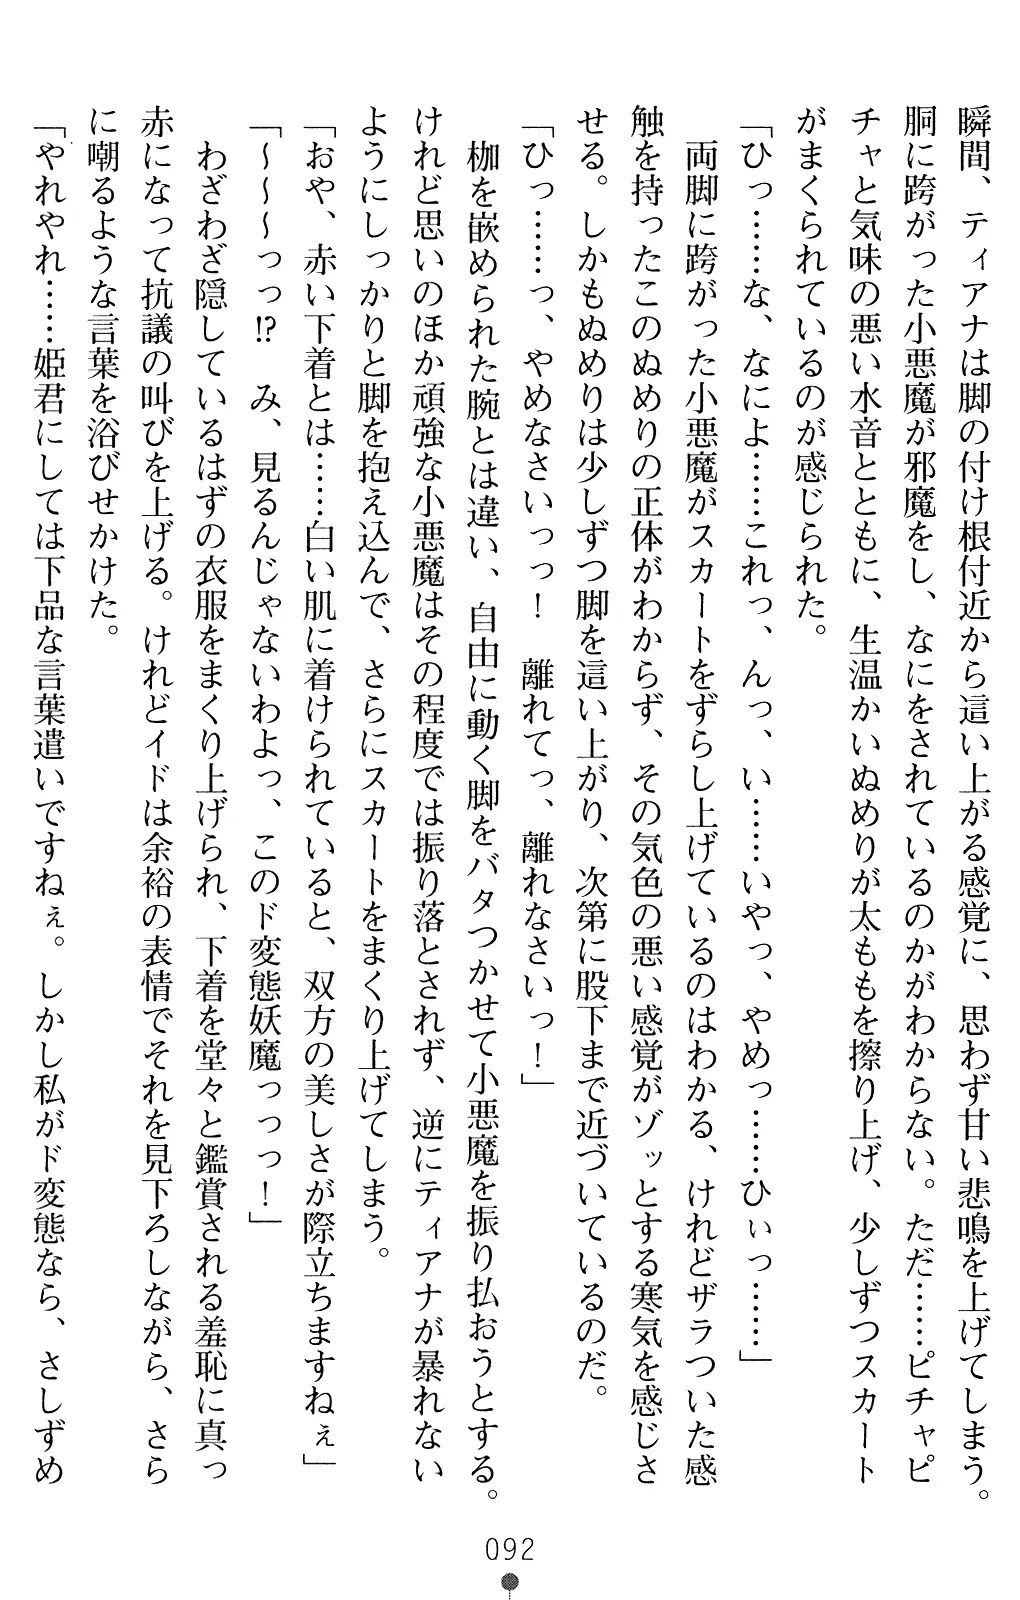 瞬間、ティアナは脚の付け根付近から這い上がる感覚に、思わず甘い悲鳴を上げてしまう。
胴に跨がった小悪魔が邪魔をし、なにをされているのかがわからない。ただ……ピチャピ
チャと気味の悪い水音とともに、生温かいぬめりが太ももを擦り上げ、少しずつスカート
がまくられているのが感じられた。
「ひっ……な、なによ……これっ、んっ、い……いやっ、やめっ……ひぃっ……」
両脚に跨がった小悪魔がスカートをずらし上げているのはわかる、けれどザラついた感
触を持ったこのぬめりの正体がわからず、その気色の悪い感覚がゾッとする寒気を感じさ
せる。しかもぬめりは少しずつ脚を這い上がり、次第に股下まで近づいているのだ。
「ひっ……っ、やめなさいっっ！　離れてっ、離れなさいっ！」
枷を嵌められた腕とは違い、自由に動く脚をバタつかせて小悪魔を振り払おうとする。
けれど思いのほか頑強な小悪魔はその程度では振り落とされず、逆にティアナが暴れない
ようにしっかりと脚を抱え込んで、さらにスカートをまくり上げてしまう。
「おや、赤い下着とは……白い肌に着けられていると、双方の美しさが際立ちますねぇ」
「～～～っっ!?　み、見るんじゃないわよっ、このド変態妖魔っっっ！」
わざわざ隠しているはずの衣服をまくり上げられ、下着を堂々と鑑賞される羞恥に真っ
赤になって抗議の叫びを上げる。けれどイドは余裕の表情でそれを見下ろしながら、さら
に嘲るような言葉を浴びせかけた。
「やれやれ……姫君にしては下品な言葉遣いですねぇ。しかし私がド変態なら、さしずめ
092